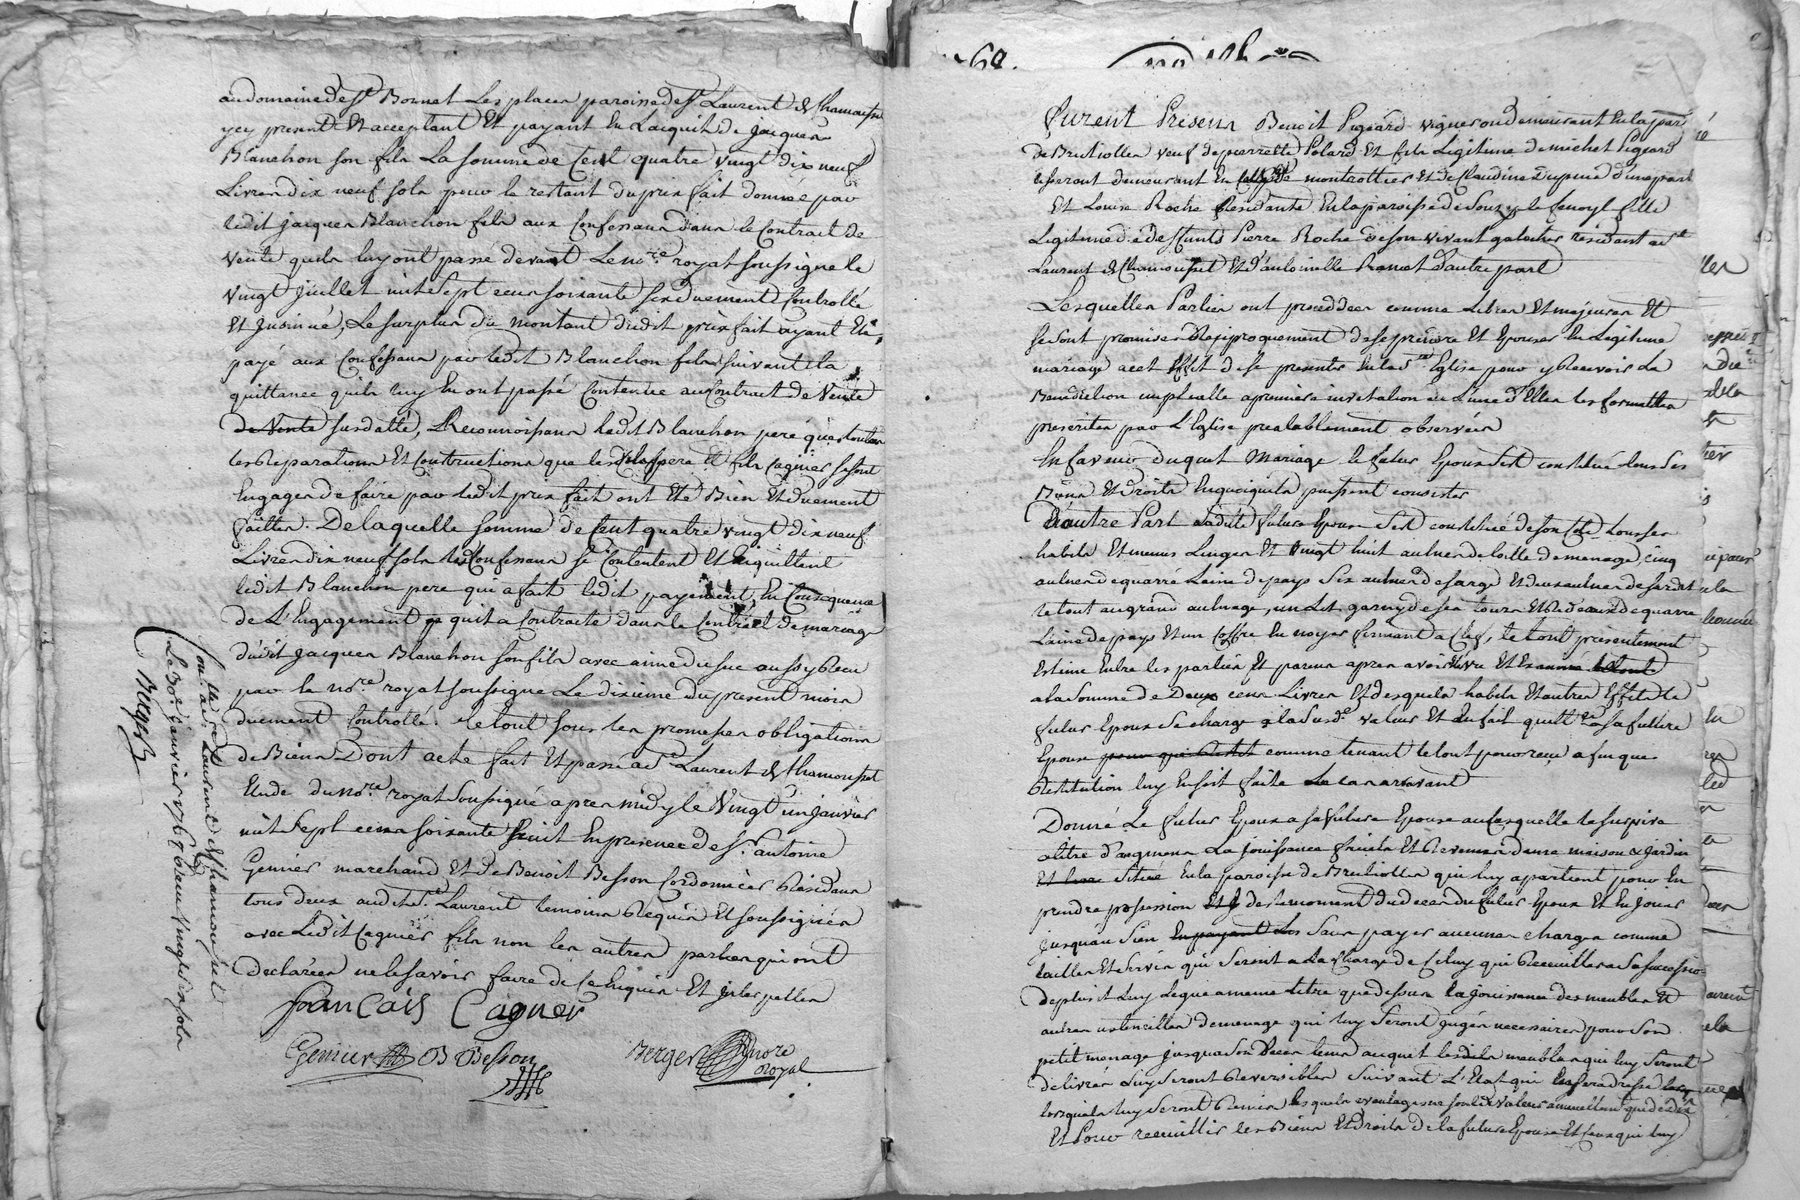 au domaine de St Bonnet Les places paroisse de St Laurent de Chamousset
yey present Et acceptant Et payant En Lacquit de jacques
Blanchon son fils La somme de Cent quatre vingt dix neuf
Livres dix neuf sols pour le restant du prix fait donnee par
ledit jacques Blanchon fils aux Confessans dans le Contrait de
vente quils luy ont passé devant Le nore royal soussigne le
vingt juillet mil sept cens soixante six duement Controllé
Et Jnsinué, Le surplus du montant dudit prix fait ayant Eté
payé aux Confessans par ledit Blanchon fils suivant la
quittance quils luy En ont passé Contenue au Contrait de Vente
de Vente susdatté, Reconnoissans ledit Blanchon pere que toutes
les Reparations Et Contructions que lesdits pere et fils Cagnier se sont
Engages de faire par ledit prix fait ont Eté Bien Et duement
faittes. De laquelle somme de Cent quatre vingt dix neuf
Livres dix neuf sols les Confessans se Contentent Et En quittent
ledit Blanchon pere qui a fait ledit payement En Consequence
de L'Engagement quil a Contracté dans le Contrait de mariage
dudit Jacques Blanchon son fils avec aimé aussy Receu
par le nore royal soussigne Le dixieme du present mois
duement Controllé. le tout sous les promesses obligations
de Biens Dont acte fait Et passé a St Laurent de Chamousset
Etude du nore royal soussigné apres midy le Vingt un janvier
mil sept cens soixante huit En presence de Sr. antoine
Genier marchand et de Benoit Besson Cordonnier Residans
tous deux audit St. Laurent temoins Requis Et soussignés
avec Ledit Cagnier fils non les autres parties qui ont
declarées ne le savoir faire de ce Enquis Et jnterpellés
francais Cagner
Genier B Besson Berger Nore
Royal
Conté a St Laurent de Chamousset
Le 30e janvier 1768 Receu vingt six sols
Berger
68.
Furent Presens Benoit Pigeard vigneron demeurant En la parr
de Brulliolles veuf de pierrette Polard Et fils Legitime de michel Pigeard
demeurant En montrottier Et de Claudine Dupuis d'une part
Et Louise Roche Residante En la paroisse de Souzy le Canoyl fille
Legitime de defunts Pierre Roche de son vivant galocher résidant a St
Laurent de Chamousset Et d'antoinette Ramet d'autre part
Lesquelles Parties ont procedées comme Libres Et majeures Et
se sont promises Reciproquement de se prendre Et Epouser En Legitime
mariage a cet Effet de se presenter En la Ste Eglise pour y Recevoir La
Benediction nuptialle a premiere invitation de L'une d'Elles les formalites
prescrites par L'Eglise prealablement observées
En faveur duquel Mariage le futur Epoux s'est constitué tous ses
Biens Et Droits En quoiquils puissent consister
D'autre Part Ladite future Epouse s'est constitué de son Coté tous ses
habits Et menus Linges Et vingt huit aulnes de toille de menage, cinq
aulnes de quarré Laine de pays six aulnes de sarge Et deux aulnes de
le tout au grand aulnage, un Lit garny de ses tours Et Rideaux de quarre
Laine de pays Et un Coffre En noyer fermant a Clef, le tout presentement
Estimé Entre les parties Et parens apres avoir Et Examiné le tout
a la somme de Deux cens Livres Et desquels habits Et autres Effets le
futur Epoux se charge a la susde valeur Et En fait quittce a sa future
Epouse comme tenant le tout pour reçu afin que
Restitution luy En soit faite le cas arrivant
Donné Le futur Epoux a sa future Epouse au cas quelle le survive
a titre d'augment La jouissance fruits Et Revenus d'une maison & jardin
Et situé En la paroisse de Brulliolles qui luy apartient pour En
prendre possession des le moment du deces du futur Epoux Et En jouir
jusquau sien En payant Les Sans payer aucunes charges comme
tailles Et Servis qui seront a La Charge de Celuy qui Recueillera sa succession
de plus il luy legue a meme titre que dessus la jouissance des meubles Et
autres ustencilles de menage qui luy seront jugés necessaires pour son
petit menage jusqua son Deces tems auquel lesdits meubles qui luy seront
delivrés Luy seront Reversibles suivant L'Etat qui En sera dressé
lorsquils luy seront Remis
Et Pour recueillir les Biens Et droits de la future Epouse Et Ceux qui luy